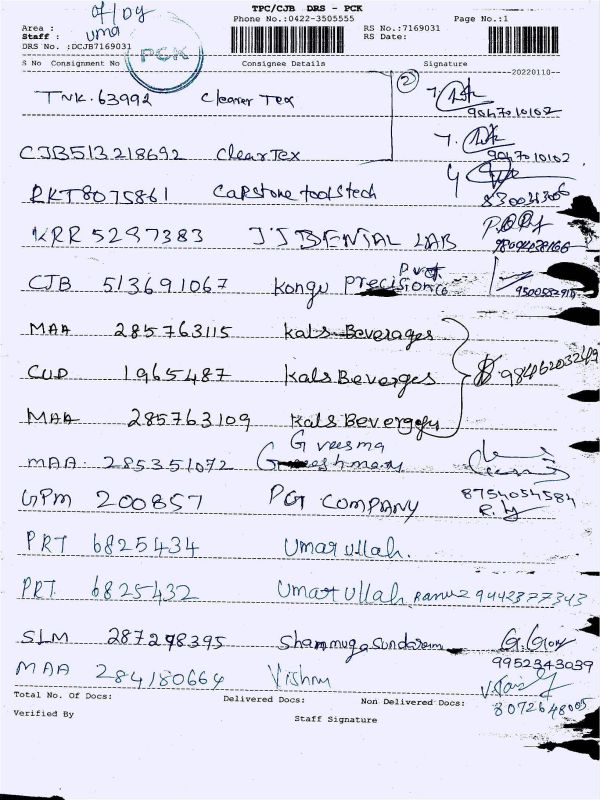 07/09
TPC/CJB DRS - PCK
Phone No.:0422-3505555
Page No.:1
Area :
Staff : uma
RS No.:7169031
RS Date:
DRS No. :DCJB7169031
PCK
S No Consignment No Consignee Details Signature
20220110
TNK.63992 Clearer Tex 2
9047010102
CJB513218692 ClearTex 9047010102
RKT8075861 Capstone toolstech
KRR 5297383 JJ DENTAL LAB
CJB 513691067 Kongu Precision
MAA 285763115 Kals Beverages
CUD 1965487 Kals Beverges 9846203249
MAA 285763109 Kals Bevergefs
MAA 285351072 Greesma
GPM 200857 PGT COMPANY 8754054584
PRT 6825434 Umar ullah.
PRT 6825432 Umar ullah 9442877343
SLM 287298395 Shanmuga Sundaram
9952343039
MAA 284180664 Vishnu
8072648005
Total No. Of Docs: Delivered Docs: Non Delivered Docs:
Verified By Staff Signature